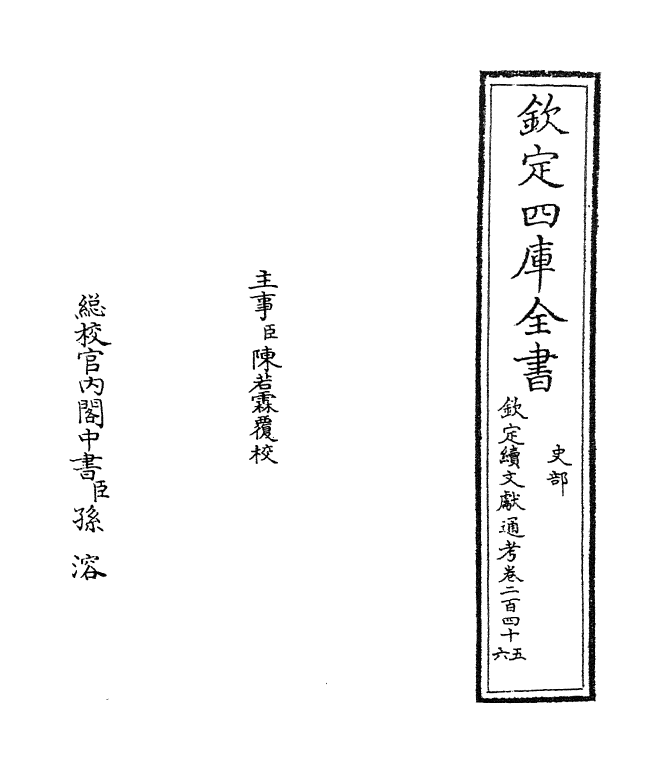 欽定四庫全書
史部
欽定續文獻通考卷二百四十五六
主事臣陳若霖覆校
総校官內閣中書臣孫溶